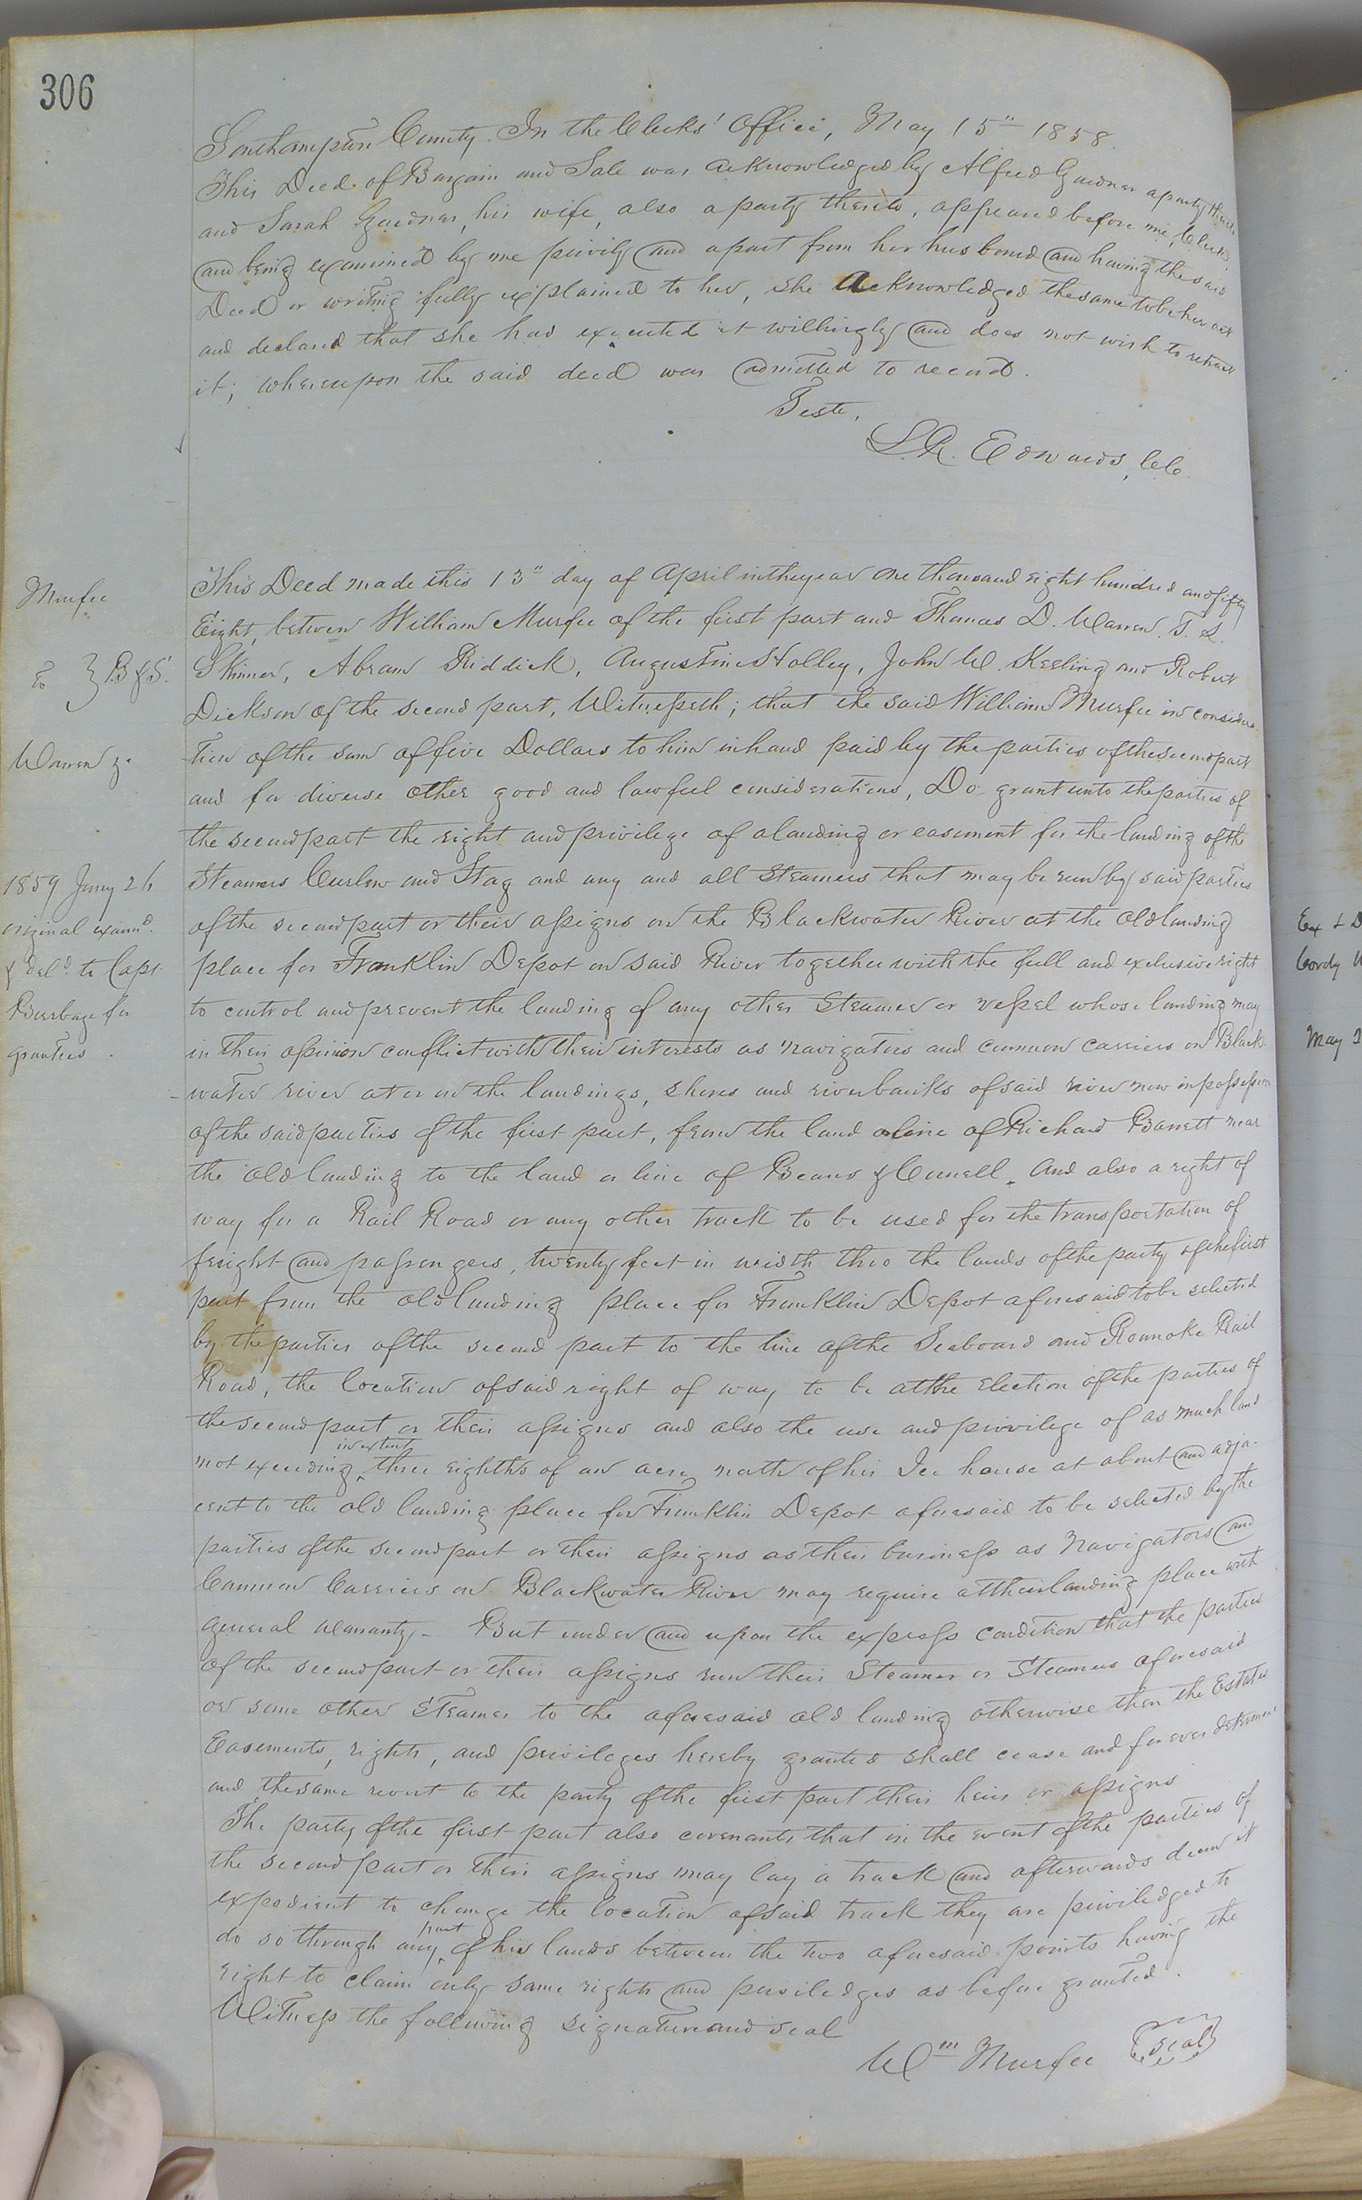 306
Southampton County. In the Clerks' Office, May 15" 1858.
This Deed of Bargain and Sale was acknowledged by Alfred Gardner a party thereto
and Sarah Gardner, his wife, also a party thereto, appeared before me, Clerk,
and being examined by me privily and apart from her husband and having the said
Deed or writing fully explained to her, she acknowledged the same to be her act
and declared that she had executed it willingly and does not wish to retract
it; whereupon the said deed was admitted to record.
Teste,
L. R. Edwards, C.C.
Murfee
to } B & S.
Warren &c
1859 Jany 26
original examd.
& deld. to Capt
Burbage for
grantees.
This Deed made this 13" day of April in the year One thousand eight hundred and fifty
Eight, between William Murfee of the first part and Thomas D. Warren, T. L.
Skinner, Abram Riddick, Augustine Holley, John W. Keeling and Robert
Dickson of the second part, Witnesseth; that the said William Murfee in considera-
tion of the sum of five Dollars to him in hand paid by the parties of the second part
and for diverse other good and lawfull considerations, Do grant unto the parties of
the second part the right and privilege of a landing or easment for the landing of the
Steamers Curlew and Stag and any and all Steamers that may be run by said parties
of the second part or their assigns on the Blackwater River at the old landing
place for Franklin Depot on said River together with the full and exclusive right
to control and prevent the landing of any other Steamer or vessel whose landing may
in their opinion conflict with their interests as navigators and common carriers on Black-
water river at or on the landings, shores and riverbanks of said river now in possession
of the said parties of the first part, from the land or line of Richard Barrett near
the old landing to the land or line of Beans & Council. And also a right of
way for a Rail Road or any other track to be used for the transportation of
freight and passengers, twenty feet in width thro the lands of the party of the first
part from the old landing place for Franklin Depot aforesaid to be selected
by the parties of the second part to the line of the Seaboard and Roanoke Rail
Road, the location of said right of way to be at the election of the parties of
the second part or their assigns and also the use and privilege of as much land
not exceeding in extent three eighths of an acre north of his Ice house at about and adja-
cent to the old landing place for Franklin Depot aforesaid to be selected by the
parties of the second part or their assigns as their business as Navigators and
Common Carriers on Blackwater River may require at their landing place with
general warranty - But under and upon the express condition that the parties
of the second part or their assigns run their Steamer or Steamers aforesaid
or some other Steamer to the aforesaid old landing otherwise then the Estates
Easements, rights, and privileges hereby granted shall cease and forever determine
and the same revert to the party of the first part their heirs or assigns
The party of the first part also covenants that in the event of the parties of
the second part or their assigns may lay a track and afterwards deem it
expedient to change the location of said track they are priviledged to
do so through any part of his lands between the two aforesaid points having the
right to claim only same rights and priviledges as before granted.
Witness the following signature and seal
Wm Murfee {seal}
Ex & D
Cordy
May